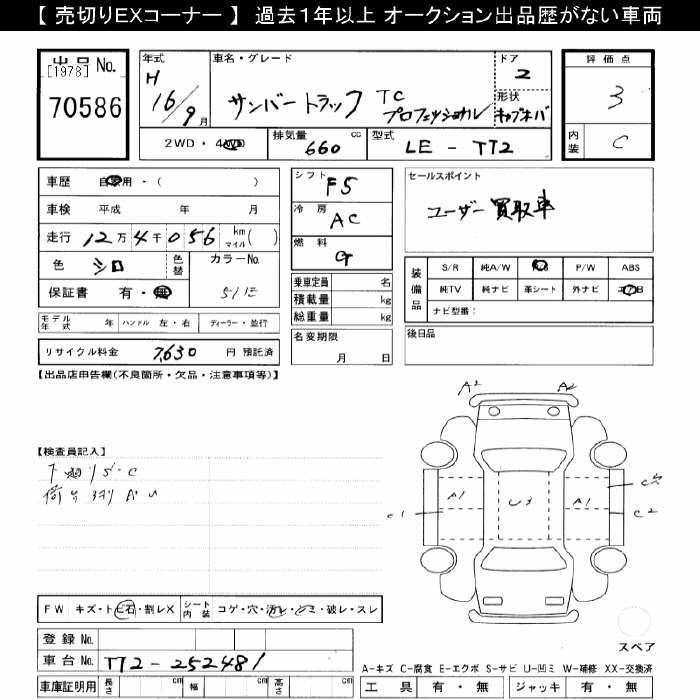 【 売切りEXコーナー 】 過去１年以上 オークション出品歴がない車両
出品 No.
[1978]
70586
年式
H
16/9月
車名・グレード
サンバートラック TC
プロフェッショナル
ドア
2
形状
キャブオーバ
評価点
3
内装
C
2WD・4WD
排気量 660 cc
型式 LE - TT2
車歴 自家用・( )
車検 平成 年 月
走行 12万4千056 km マイル( )
色 シロ 色替 カラーNo.
保証書 有・無 51E
シフト F5
冷房 AC
燃料 G
セールスポイント
ユーザー買取車
装備品 S/R 純A/W P/W ABS
純TV 純ナビ 革シート 外ナビ
ナビ型番：
乗車定員 名
積載量 kg
総重量 kg
モデル年式 年 ハンドル 左・右 ディーラー・並行
リサイクル料金 7,630 円 預託済
名変期限
月 日
後日品
【出品店申告欄(不良箇所・欠品・注意事項等)】
【検査員記入】
下廻りS・C
荷台ヨリA・U
A2 A2
A1 U3 A1
C1 C2
FW キズ・トビ石・割レX シート内装 コゲ・穴・汚レ・シミ・破レ・スレ
登録 No.
車台 No. TT2-252481
車庫証明用 長さ cm 幅 cm 高さ cm
スペア
A-キズ C-腐食 E-エクボ S-サビ U-凹ミ W-補修 XX-交換済
工具 有・無 ジャッキ 有・無